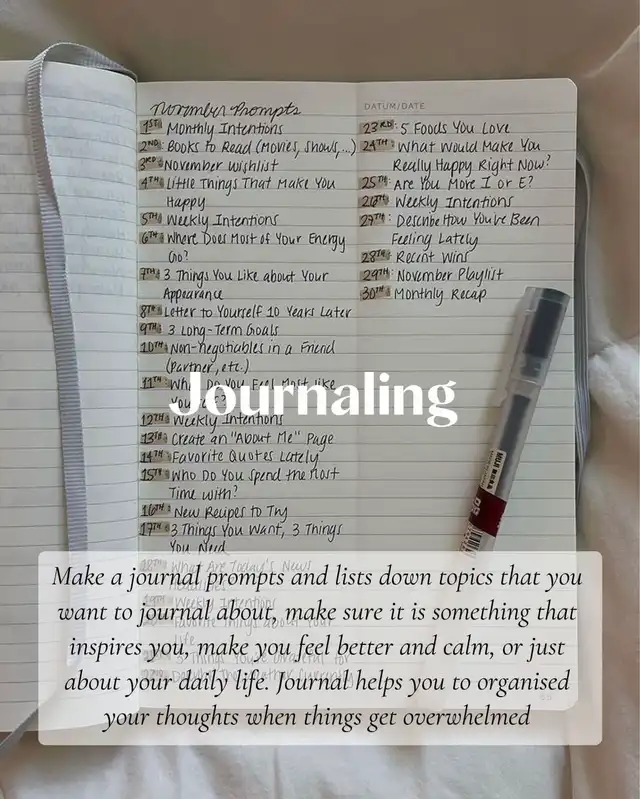 November Prompts
1ST: Monthly Intentions
2ND: Books to Read (Movies, Shows,...)
3RD: November Wishlist
4TH: Little Things That Make You
Happy
5TH: Weekly Intentions
6TH: Where Does Most of Your Energy
Go?
7TH: 3 Things You Like about Your
Appearance
8TH: Letter to Yourself 10 Years Later
9TH: 3 Long-Term Goals
10TH: Non-negotiables in a Friend
(Partner, etc.)
11TH: Do You Feel Most like
12TH: Weekly Intentions
13TH: Create an "About Me" Page
14TH: Favorite Quotes Lately
15TH: Who Do You Spend the Most
Time with?
16TH: New Recipes to Try
17TH: 3 Things You Want, 3 Things
You Need
18TH: What Are Today's News
19TH: Weekly Intentions
Favorite Things about Your
Life
DATUM/DATE
23RD: 5 Foods You Love
24TH: What Would Make You
Really Happy Right Now?
25TH: Are You More I or E?
26TH: Weekly Intentions
27TH: Describe How You've Been
Feeling Lately
28TH: Recent Wins
29TH: November Playlist
30TH: Monthly Recap
Journaling
MUJI
Make a journal prompts and lists down topics that you
want to journal about, make sure it is something that
inspires you, make you feel better and calm, or just
about your daily life. Journal helps you to organised
your thoughts when things get overwhelmed